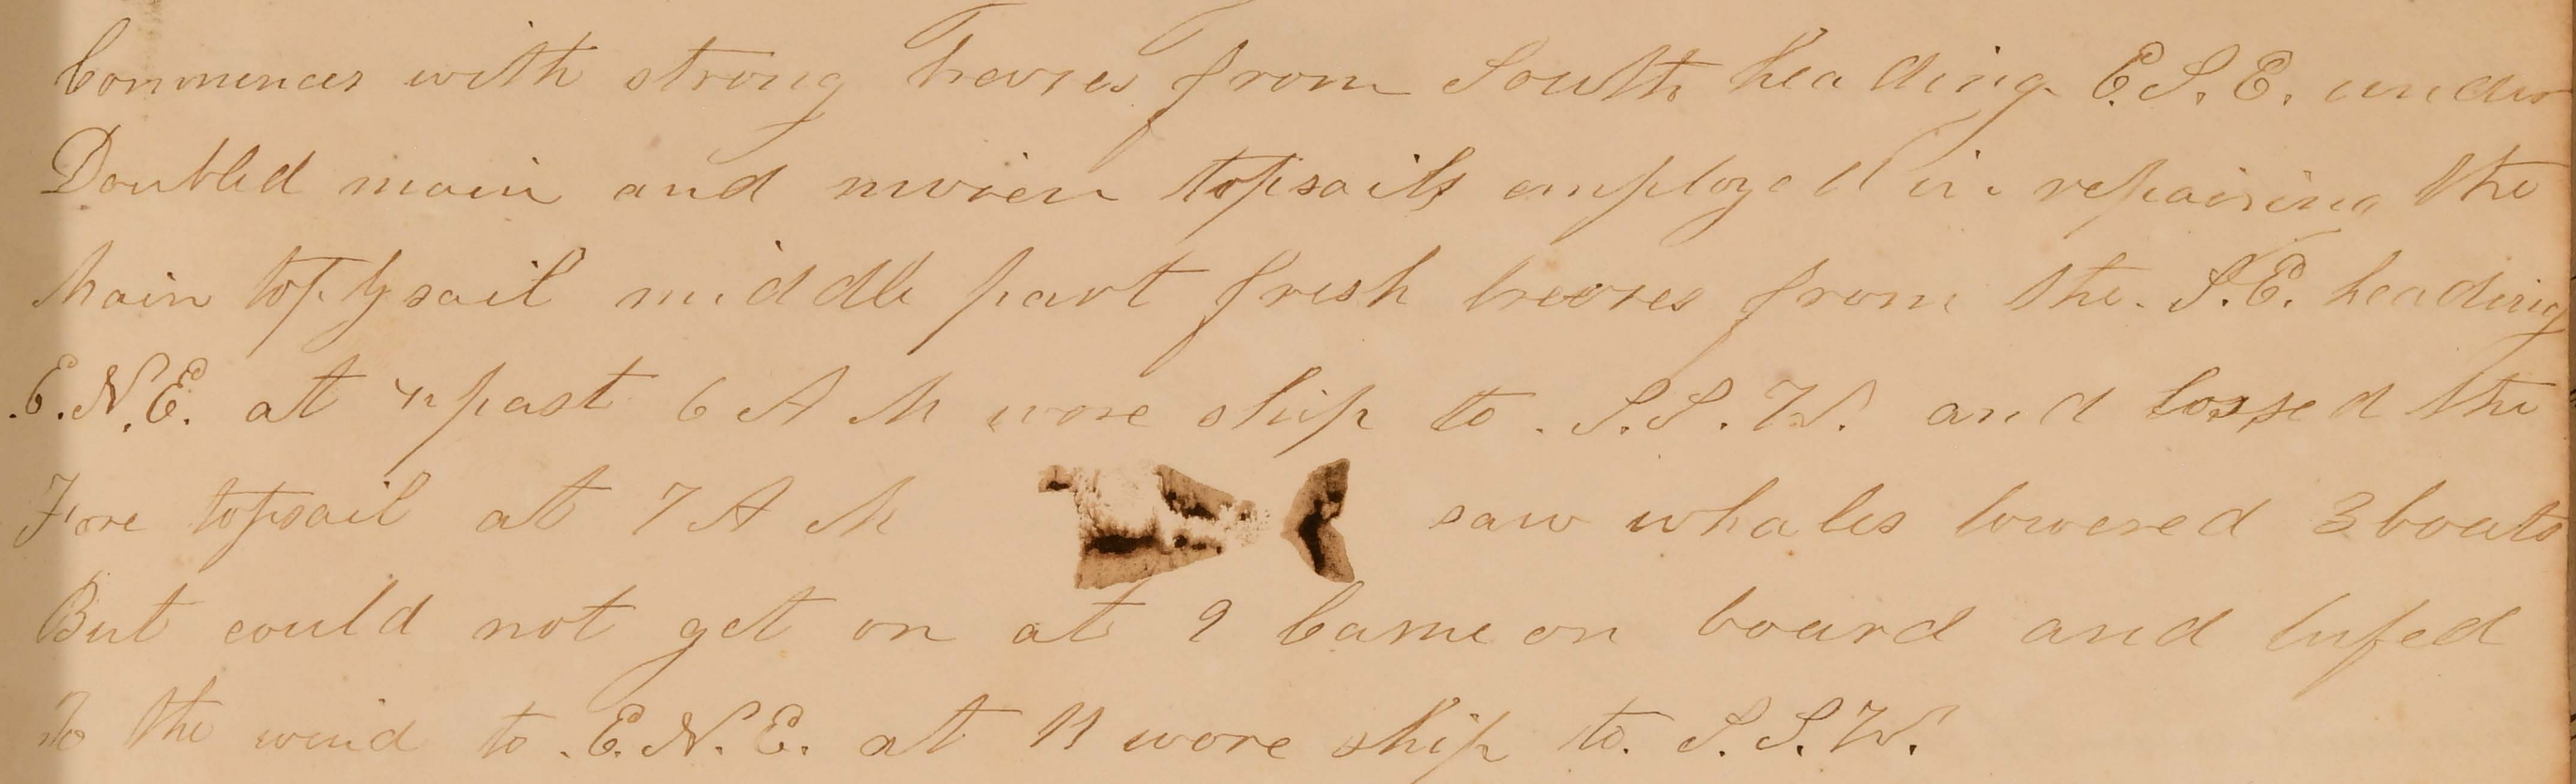 Commences with strong breses from South heading E.S.E. under
Doubled main and mizen topsails employed in repairing the
Main topsail middle part fresh breezes from the S.E. heading
E.N.E. at ½ past 6 A M wore ship to S.S.W. and the
Fore topsail at 7 A M saw whales lowered 3 boats
But could not get on at 9 Came on board and lufed
To the wind to E.N.E. at 11 wore ship to S.S.W.